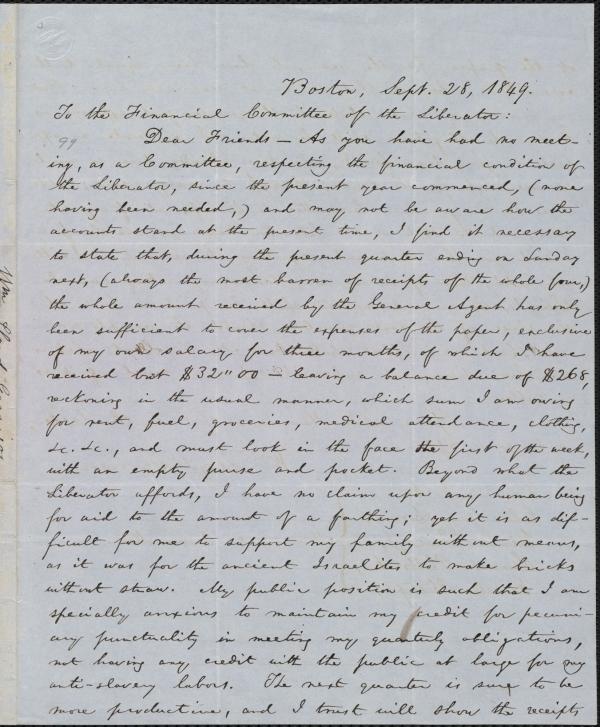 Boston, Sept. 28, 1849.
To the Financial Committee of the Liberator:
99
Dear Friends — As you have had no meet-
ing, as a Committee, respecting the financial condition of
the Liberator, since the present year commenced, (none
having been needed,) and may not be aware how the
accounts stand at the present time, I find it necessary
to state that, during the present quarter ending on Sunday
next, (always the most barren of receipts of the whole four,)
the whole amount received by the General Agent has only
been sufficient to cover the expenses of the paper, exclusive
of my own salary for three months, of which I have
received but $32"00 — leaving a balance due of $268,
reckoning in the usual manner, which sum I am owing
for rent, fuel, groceries, medical attendance, clothing,
&c. &c., and must look in the face the first of the week,
with an empty purse and pocket. Beyond what the
Liberator affords, I have no claim upon any human being
for aid to the amount of a farthing; yet it is as dif-
ficult for me to support my family without means,
as it was for the ancient Israelites to make bricks
without straw. My public position is such that I am
specially anxious to maintain my credit for pecuni-
ary punctuality in meeting my quarterly obligations,
not having any credit with the public at large for my
anti-slavery labors. The next quarter is sure to be
more productive, and I trust will show the receipts